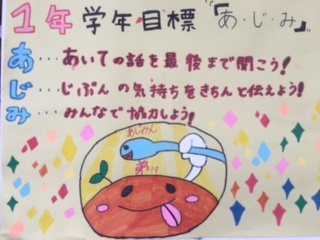 1年学年目標「あ・じ・み」
あ…あいての話を最後まで聞こう!
じ…じぶんの気持ちをきちんと伝えよう!
み…みんなで協力しよう!
あじみん